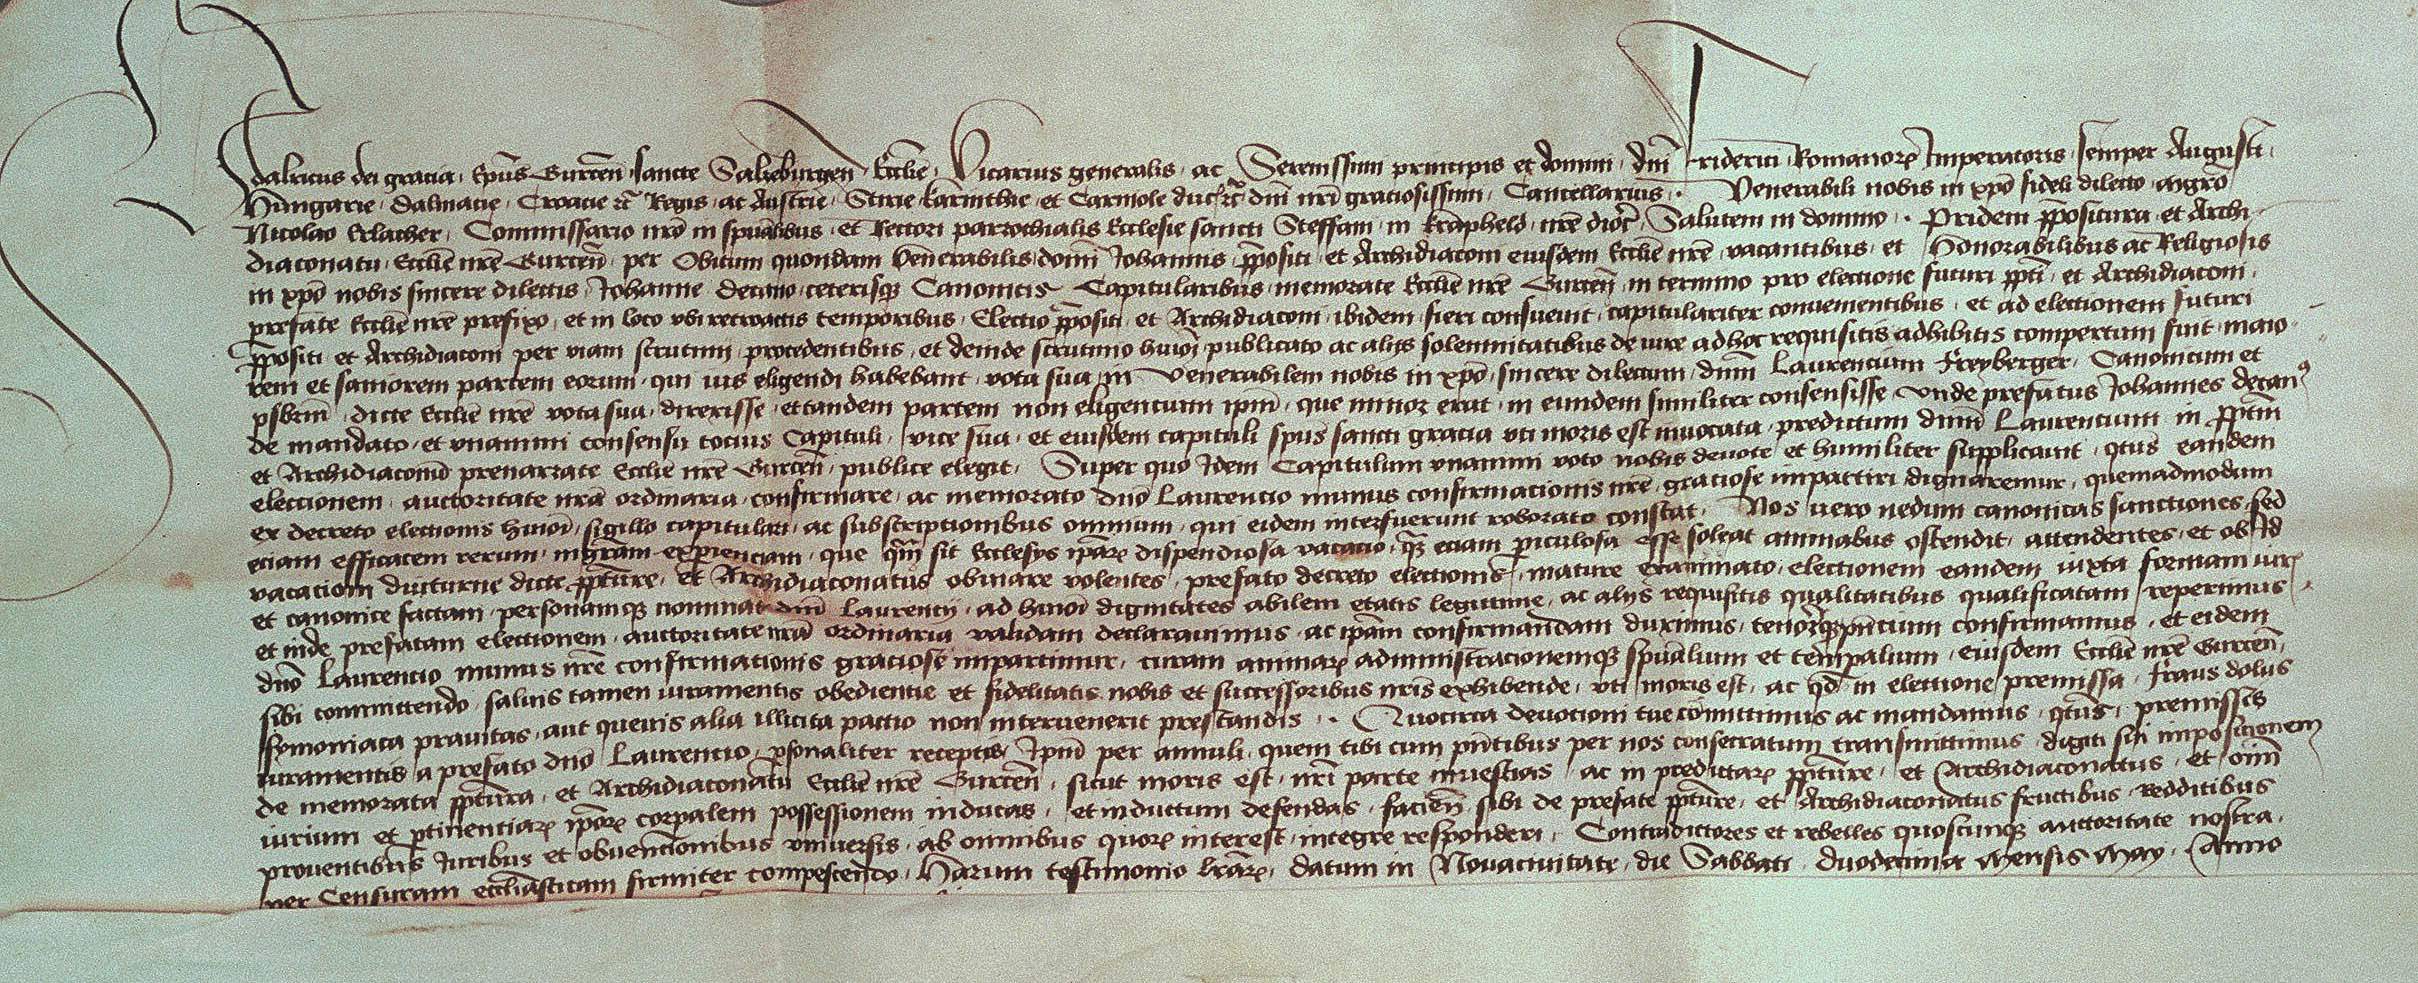 Udalricus dei gracia · Ep̄us Gurceñ · sancte Salczburgeñ Ecclie · Vicarius generalis · ac Serenissimi principis et domini · dñi Friderici · Romanorꝫ Imperatoris · semper Augusti ·
Hungarie · Dalmacie · Croacie ꝛc̄ Regis · ac Austrie · Stirie karinthie · et Carniole duc̄ ꝛc̄ dñi nr̄i graciosissimi · Cancellarius · Venerabili nobis in xp̄o fideli dilecto · mgrō
Nicolao Erlacher · Commissario nr̄o in spūalibus · et Rectori parrochialis Ecclesie sancti Steffani · in krapheld · nr̄e dioc̄ · Salutem in domino · Pridem p̄positura · et Archi-
diaconatu · Ecclie nr̄e Gurceñ · per Obitum quondam Venerabilis domini Johannis · p̄positi · et Archidiaconi eiusdem Ecclie nr̄e · vacantibus · et Honorabilibus ac Religiosis
in xp̄o nobis sincere dilectis · Johanne decano · ceterisqꝫ Canonicis Capitularibus · memorate Ecclie nr̄e Gurceñ · in termino pro electione futuri p̄p̄ti · et Archidiaconi ·
prefate Ecclie nr̄e prefixo · et in loco vbi retroactis temporibus · Electio p̄positi · et Archidiaconi · ibidem · fieri consueuit · capitulariter conuenientibus · et ad electionem futuri
p̄positi · et Archidiaconi per viam scrutini · procedentibus · et deinde scrutinio hui̅o̅i̅ · publicato ac alijs solemnitatibus de iure adhoc requisitis adhibitis compertum fuit · maio-
rem et saniorem partem eorum · qui ius eligendi habebant · vota sua in Venerabilem nobis in xp̄o · sincere dilectum · dñm Laurencium Freyberger · Canonicum et
p̄sbrm̄ · dicte Ecclie nr̄e vota sua · direxisse · et tandem partem non eligencium ip̄m · que minor erat · in eundem similiter consensisse · Vnde prefatus Johannes decanꝰ
de mandato · et vnanimi consensu tocius Capituli · vice sua · et eiusdem capituli sp̄us sancti gracia vti moris est inuocata · predictum dñm Laurencium in p̄p̄tm̄
et Archidiaconū prenarrate Ecclie nr̄e Gurceñ · publice elegit · Super quo Idem Capitulum vnanimi voto nobis deuote et humiliter supplicauit · qtus̄ eandem
electionem · auctoritate nr̄a ordinaria · confirmare · ac memorato dño Laurencio munus confirmacionis nr̄e · graciose impartiri dignaremur · quemadmodum
ex decreto electionis hui̅o̅i̅ · sigillo capitulari · ac subscriptionibus omnium · qui eidem interfuerunt roborato constat · Nos vero nedum canonicas sanctiones · sed
eciam efficacem rerum · mgr̄am experienciam · que qm̄ sit Ecclesijs ip̄arꝫ dispendiosa vacacio · qꝫ eciam p̱iculosa esse soleat animabus ostendit · attendentes · et ob Id
vacacioni diuturne dicte p̄p̄ture · et Archidiaconatus obuiare volentes · prefato decreto electionis · mature examinato · electionem eandem iuxta formam iurꝫ
et canonice factam · personamqꝫ nominat dñi Laurencij · ad hui̅o̅i̅ dignitates abilem etatis legittime · ac alijs requisitis qualitatibus qualificatam reperimus ·
et inde prefatam electionem · auctoritate nr̄a ordinaria validam declarauimus · ac ip̄am confirmandam duximus · tenorꝫqꝫ pn̄cium confirmamus · et eidem
dño Laurencio munus nr̄e confirmationis graciose impartimur · curam animarꝫ administracionemqꝫ spūalium et temp̱alium · eiusdem Ecclie nr̄e Gurceñ ·
sibi committendo · saluis tamen iuramentis obediencie et fidelitatis nobis et successoribus nr̄is exhibende · vti moris est · ac qd̄ in electione premissa · fraus dolus
symoniaca prauitas · aut queuis alia illicita pactio non interuenerit prestandis · Quocirca deuotioni tue com̄ittimus ac mandamus · qtus̄ · premissis
iuramentis a prefato dño Laurencio · p̱sonaliter receptis Ip̄m per annuli · quem tibi cum pn̄tibus per nos consecratum transmittimus · digiti sui impositionem
de memorata p̄p̄tura · et Archidiaconatu Ecclie nr̄e Gurceñ · sicut moris est · nr̄i parte inuestias · ac in predictarꝫ p̄p̄ture · et Archidiaconatus · et oīm
iurium et p̱tinentiarꝫ ip̄orꝫ corp̱alem possessionem inducas · et inductum defendas · facieñ sibi de prefate p̄p̄ture · et Archidiaconatus fructibus · redditibus
prouentibus Iuribus et obuencionibus vniuersis · ab omnibus quorꝫ interest · integre responderi · Contradictores et rebelles quoscunqꝫ auctoritate nostra ·
per Censuram ecclīasticam firmiter compescendo · Harum testimonio lrārꝫ · datum in Nouaciuitate · die Sabbati · duodecima Mensis May · Anno